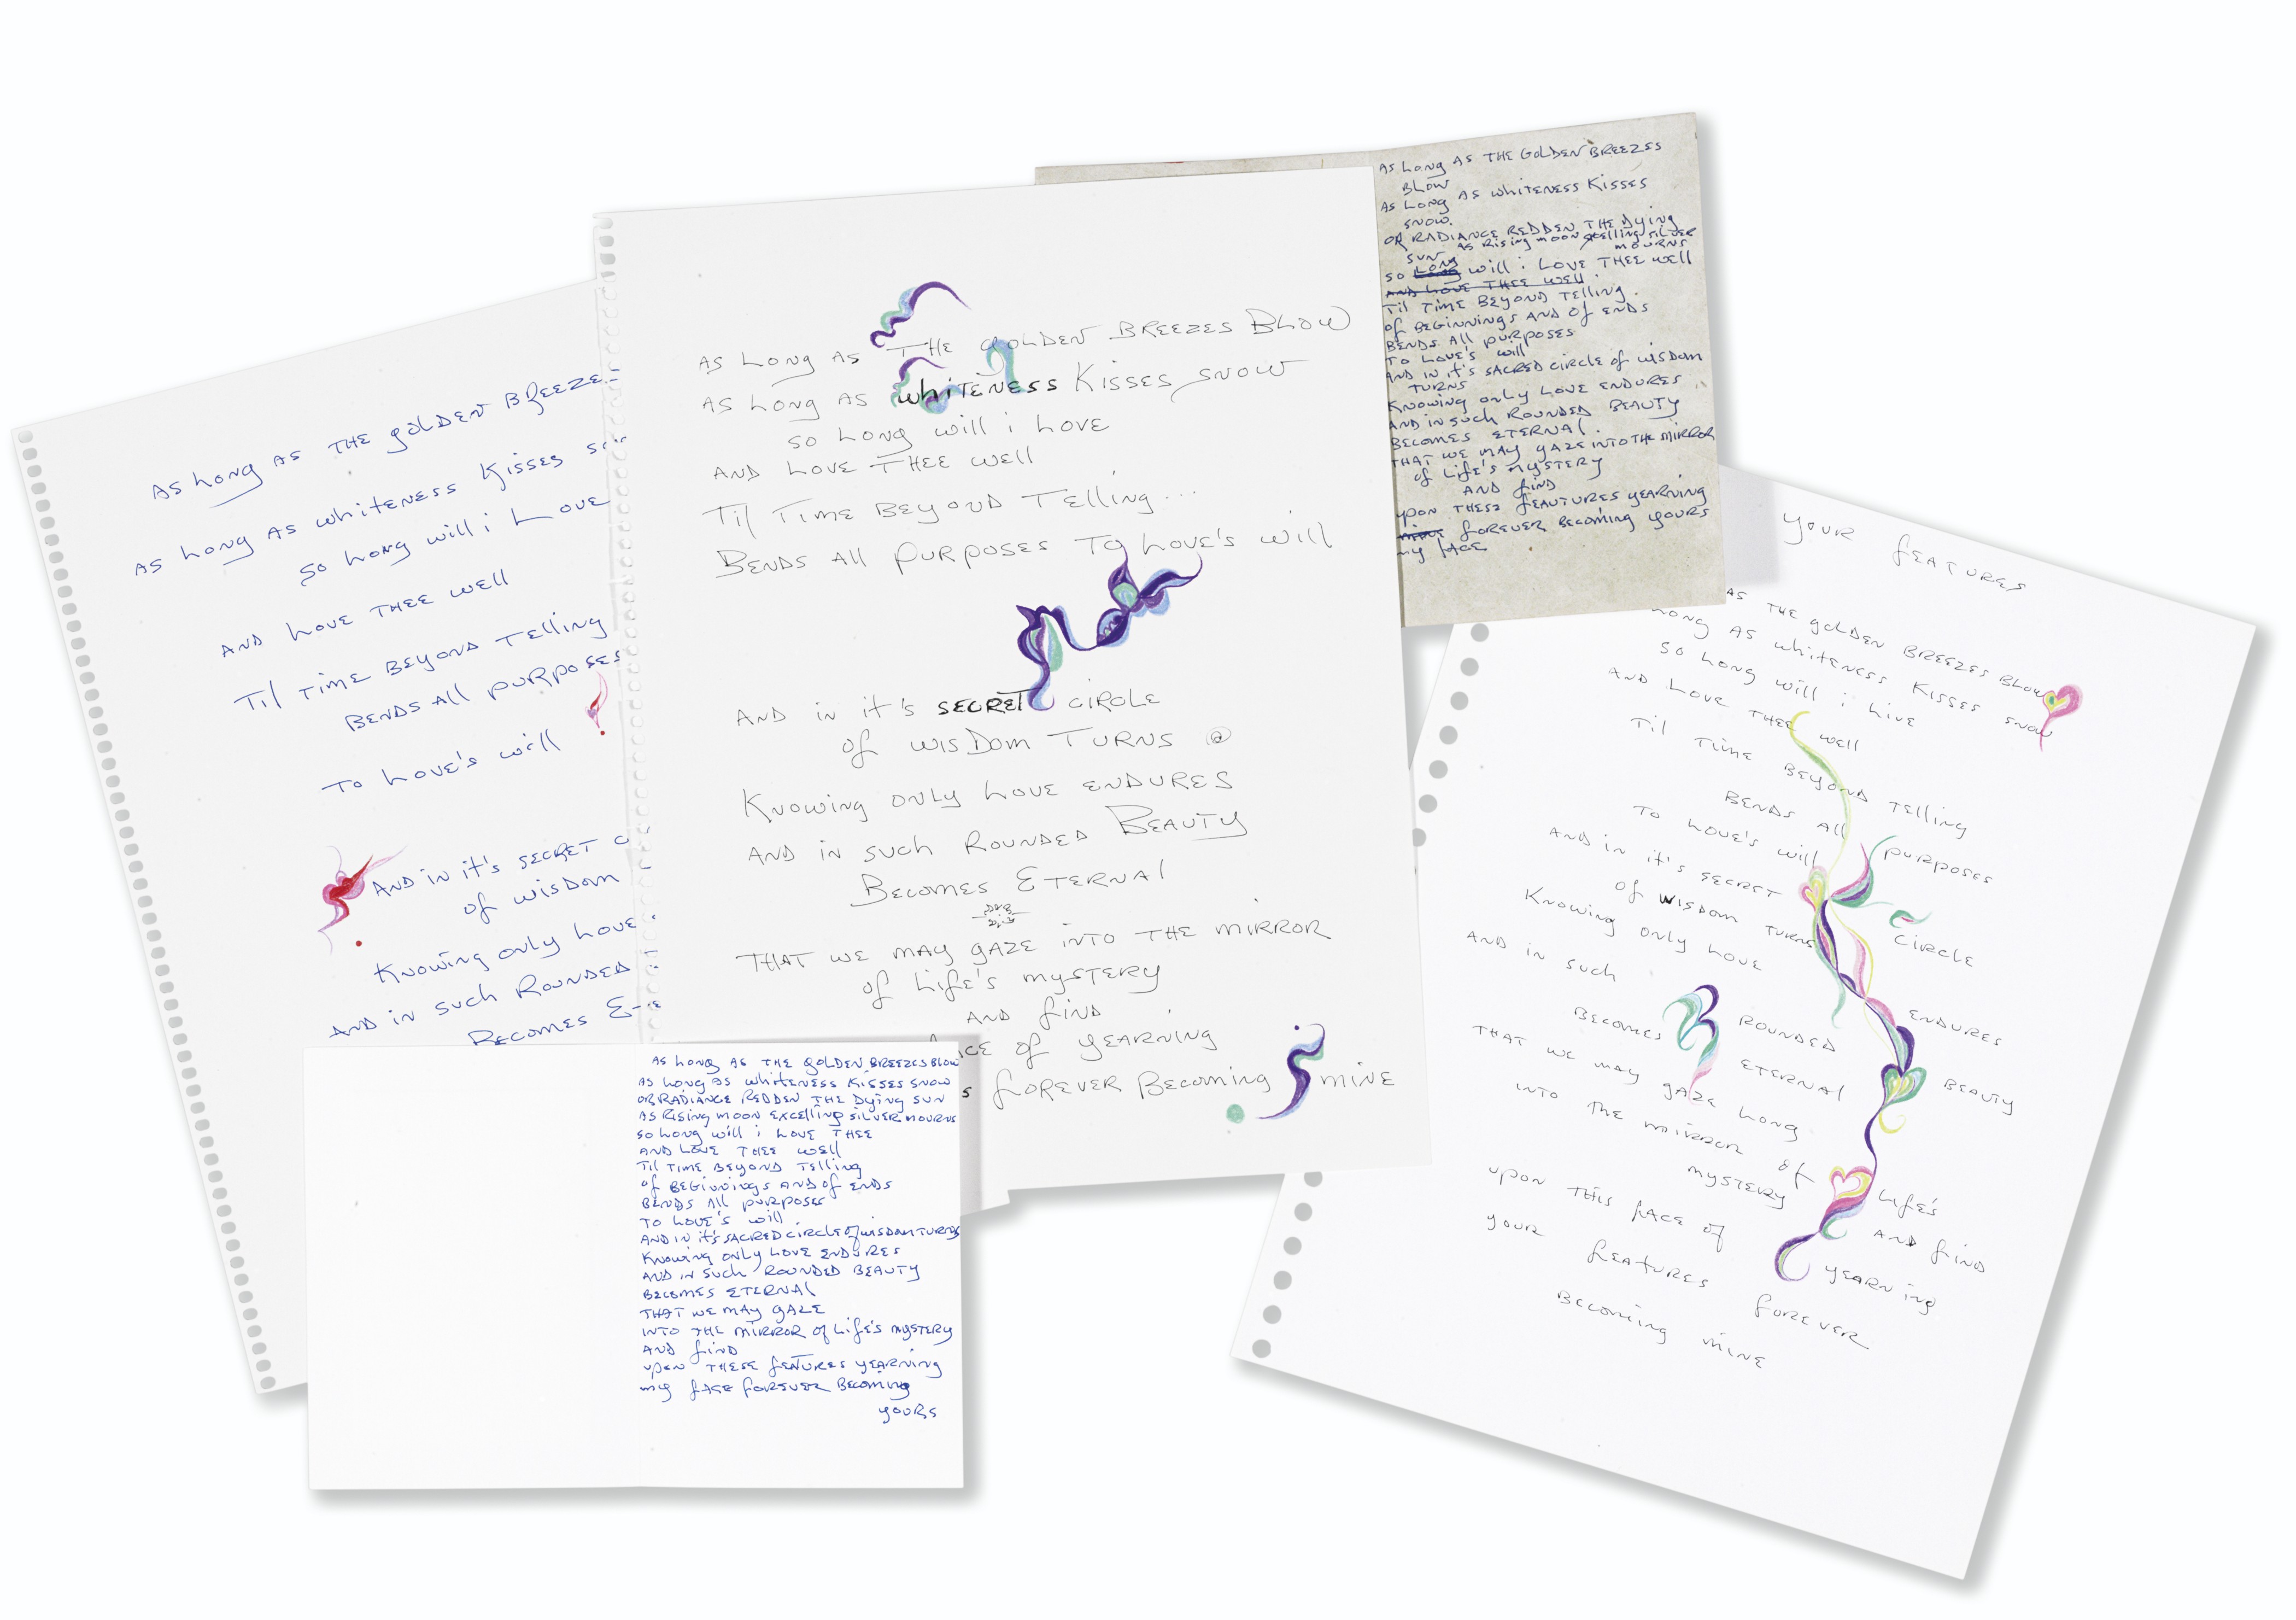 AS LONG AS THE GOLDEN BREEZE
AS LONG AS WHITENESS KISSES
SO LONG WILL i LOVE
AND LOVE THEE WELL
TIL TIME BEYOND TELLING
BENDS ALL PURPOSES
TO LOVE'S WILL
AND IN IT'S SECRET C
OF WISDOM
KNOWING ONLY LOVE
AND IN SUCH ROUNDED
BECOMES E
AS LONG AS THE GOLDEN BREEZES BLOW
AS LONG AS WHITENESS KISSES SNOW
SO LONG WILL i LOVE
AND LOVE THEE WELL
TIL TIME BEYOND TELLING...
BENDS ALL PURPOSES TO LOVE'S WILL
AND IN IT'S SECRET CIRCLE
OF WISDOM TURNS
KNOWING ONLY LOVE ENDURES
AND IN SUCH ROUNDED BEAUTY
BECOMES ETERNAL
THAT WE MAY GAZE INTO THE MIRROR
OF LIFE'S MYSTERY
AND FIND
ACE OF YEARNING
S FOREVER BECOMING MINE
AS LONG AS THE GOLDEN BREEZES
BLOW
AS LONG AS WHITENESS KISSES
SNOW.
OR RADIANCE REDDEN THE DYING
SUN
AS RISING MOON SILVER
MOURNS
SO LONG WILL i LOVE THEE WELL
AND LOVE THEE WELL
TIL TIME BEYOND TELLING.
OF BEGINNINGS AND OF ENDS
BENDS ALL PURPOSES
TO LOVE'S WILL
AND IN IT'S SACRED CIRCLE OF WISDOM
TURNS
KNOWING ONLY LOVE ENDURES
AND IN SUCH ROUNDED BEAUTY
BECOMES ETERNAL.
THAT WE MAY GAZE INTO THE MIRROR
OF LIFE'S MYSTERY
AND FIND
UPON THESE FEAUTURES YEARNING
FOREVER BECOMING YOURS
MY FACE
YOUR FEATURES
AS THE GOLDEN BREEZES BLOW
LONG AS WHITENESS KISSES SNOW
SO LONG WILL i LIVE
AND LOVE THEE WELL
TIL TIME BEYOND TELLING
BENDS ALL PURPOSES
TO LOVE'S WILL
AND IN IT'S SECRET CIRCLE
OF WISDOM TURNS
KNOWING ONLY LOVE ENDURES
AND IN SUCH ROUNDED BEAUTY
BECOMES ETERNAL
THAT WE MAY GAZE LONG
INTO THE MIRROR OF LIFE'S
MYSTERY AND FIND
UPON THIS FACE OF YEARNING
YOUR FEATURES FOREVER
BECOMING MINE
AS LONG AS THE GOLDEN BREEZES BLOW
AS LONG AS WHITENESS KISSES SNOW
OR RADIANCE REDDEN THE DYING SUN
AS RISING MOON EXCELLING SILVER MOURNS
SO LONG WILL i LOVE THEE
AND LOVE THEE WELL
TIL TIME BEYOND TELLING
OF BEGINNINGS AND OF ENDS
BENDS ALL PURPOSES
TO LOVE'S WILL
AND IN IT'S SACRED CIRCLE OF WISDOM TURNS
KNOWING ONLY LOVE ENDURES
AND IN SUCH ROUNDED BEAUTY
BECOMES ETERNAL
THAT WE MAY GAZE
INTO THE MIRROR OF LIFE'S MYSTERY
AND FIND
UPON THESE FEATURES YEARNING
MY FACE FOREVER BECOMING
YOURS